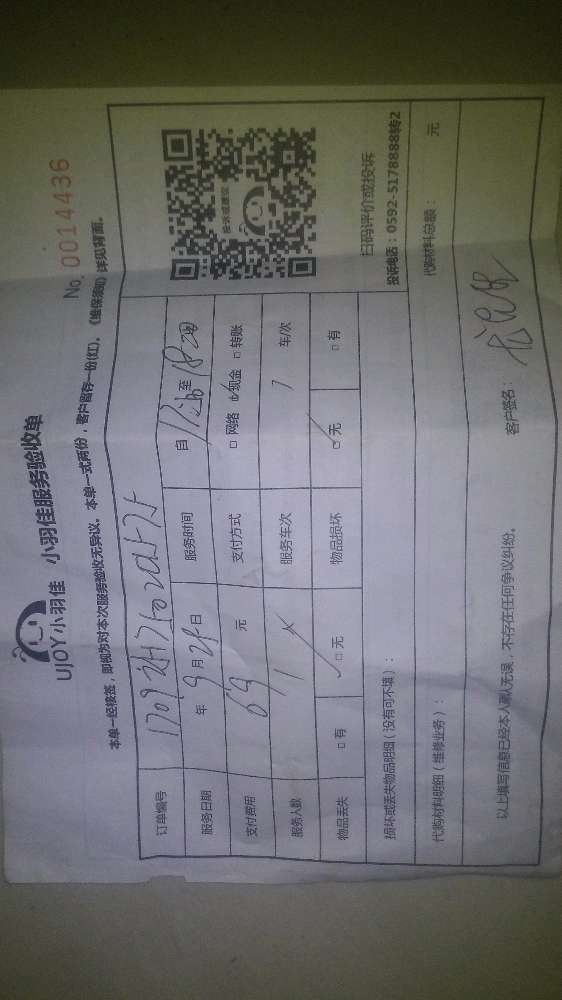 UJOY小羽佳 小羽佳服务验收单
No. 0014436
本单一经核签，即视为对本次服务验收无异议。本单一式两份，客户留存一份(红)。《维保须知》详见背面。
订单编号
服务日期 年 9 月 29 日 服务时间 自 至 18:20
支付费用 69 元 支付方式 □ 网络 ☑ 现金 □ 转账
服务人数 1人 服务车次 1 车/次
物品丢失 □ 有 ☑ 无 物品损坏 ☑ 无 □ 有
投诉或建议
扫码评价或投诉
投诉电话：0592-5178888转2
损坏或丢失物品明细（没有可不填）：
代购材料明细（维修业务）： 代购材料总额： 元
以上填写信息已经本人确认无误，不存在任何争议纠纷。 客户签名：